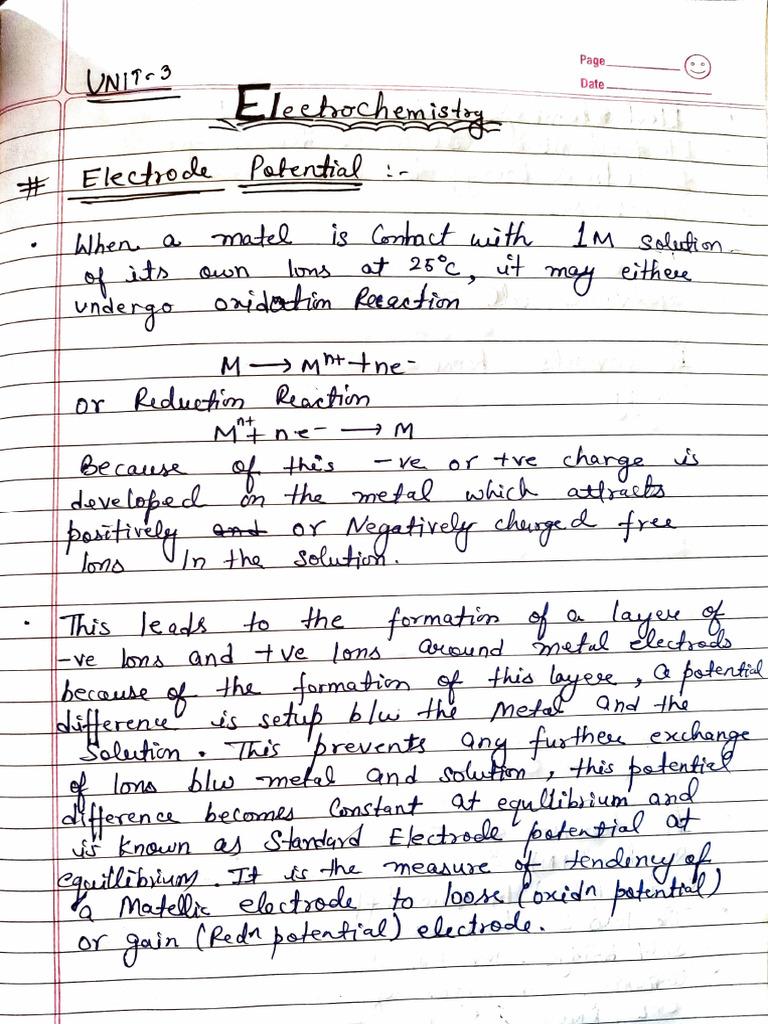 Page
Date
UNIT-3
Electrochemistry
# Electrode Potential :-
• When a matel is Contact with 1M solution
of its own Ions at 25°C, it may eithere
undergo oxidation Reaction
M → Mⁿ⁺ + ne⁻
or Reduction Reaction
Mⁿ⁺ + ne⁻ → M
Because of this -ve or +ve charge is
developed on the metal which attracts
positively and or Negatively charged free
Ions In the solution.
• This leads to the formation of a layere of
-ve Ions and +ve Ions around metal electrods
because of the formation of this layere, a potential
difference is setup b/w the Metal and the
Solution. This prevents any furthere exchange
of Ions b/w metal and solution, this potential
difference becomes Constant at equllibrium and
is known as Standard Electrode potential at
equillibrium. It is the measure of tendency of
a Matellic electrode to loose (oxidn potential)
or gain (Redn potential) electrode.